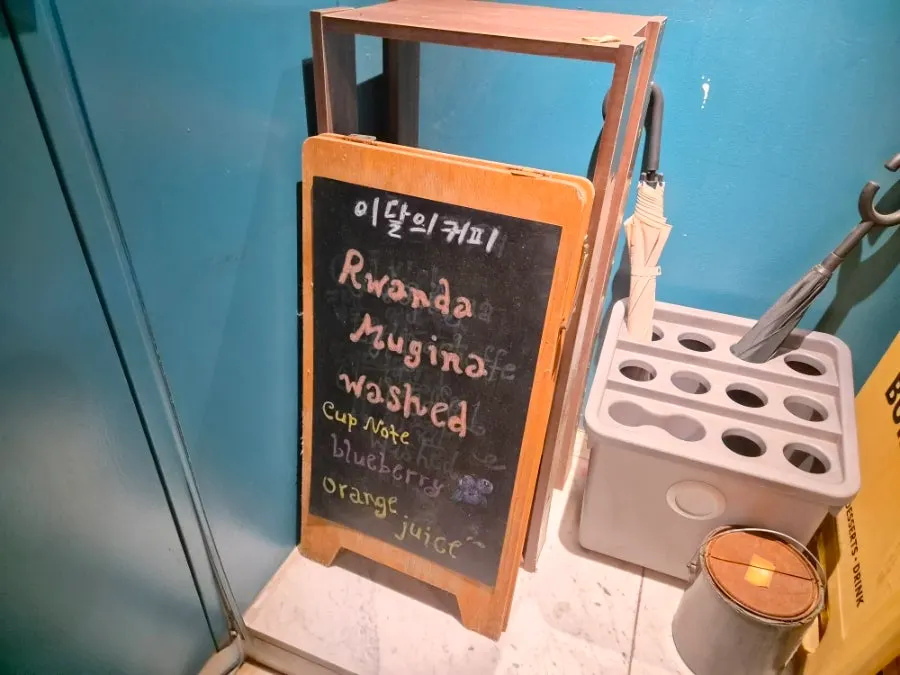 이달의 커피
Rwanda
Mugina
washed
Cup Note
blueberry
orange
juice
DESSERTS • DRINK